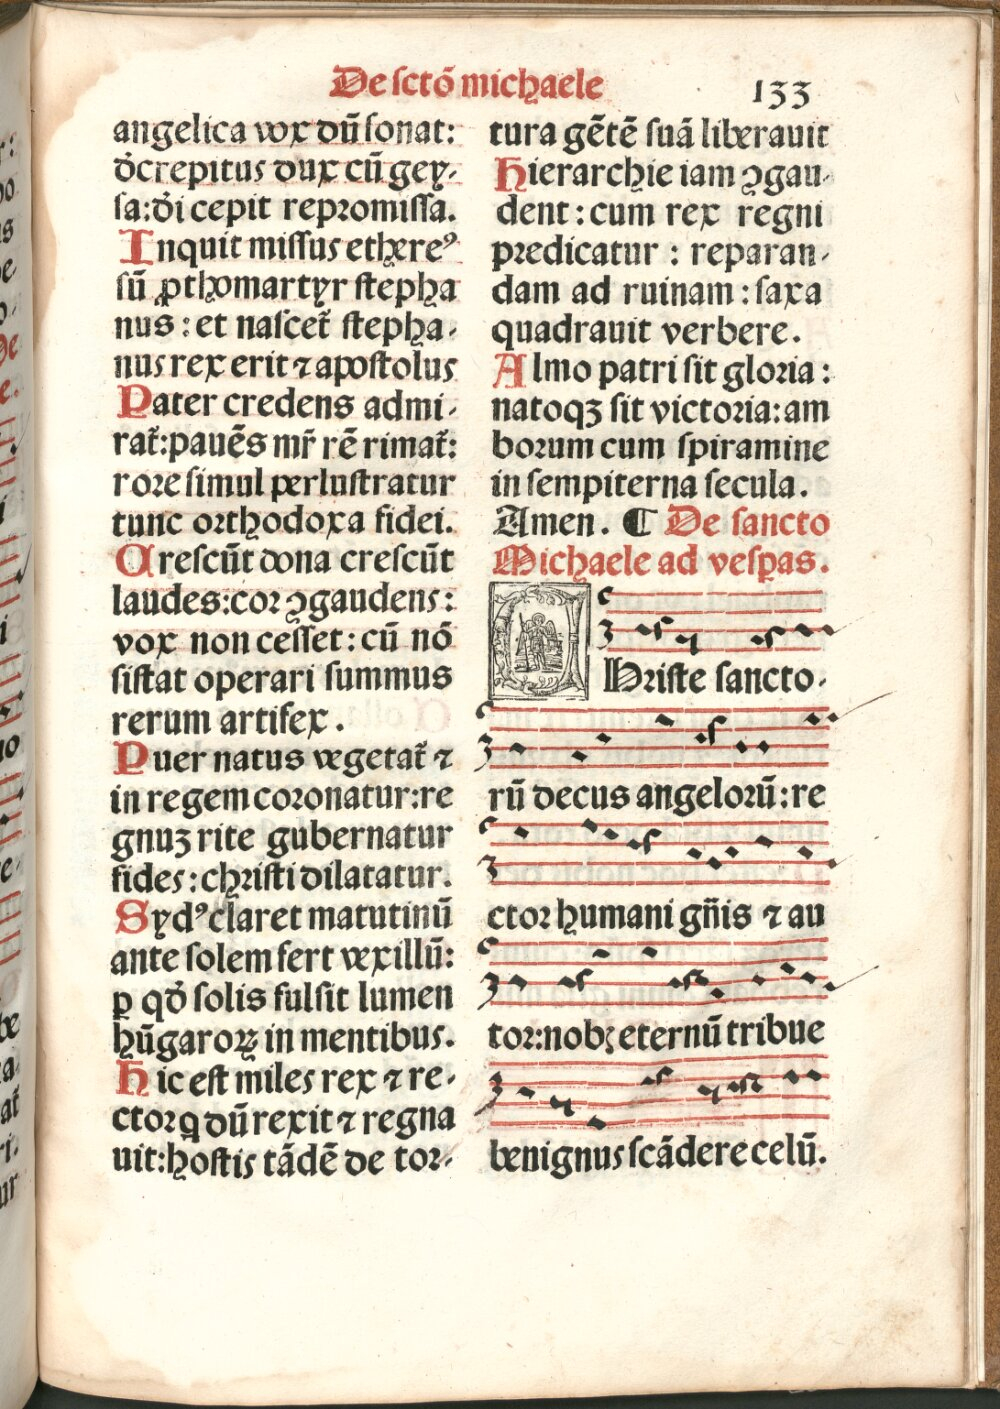 De sctō michaele 133
angelica vox dū sonat:
d̄crepitus dux cū gey-
sa: d̄i cepit repromissa.
Inquit missus ethereꝰ
sū ꝓthomartyr stepha
nus: et nascet̄ stepha-
nus rex erit ⁊ apostolus
Pater credens admi-
rat̄: pauēs mr̄ rē rimat̄:
rore simul perlustratur
tunc orthodoxa fidei.
Crescūt dona crescūt
laudes: cor ꝯgaudens:
vox non cesset: cū nō
sistat operari summus
rerum artifex.
Puer natus vegetat̄ ⁊
in regem coronatur: re
gnuꝫ rite gubernatur
fides: christi dilatatur.
Sydꝰ claret matutinū
ante solem fert vexillū:
ꝑ qd̄ solis fulsit lumen
hūgaroꝝ in mentibus.
Hic est miles rex ⁊ re-
ctor q̄ dū rexit ⁊ regna
uit: hostis tādē de tor-
tura gētē suā liberauit
Hierarchie iam ꝯgau-
dent: cum rex regni
predicatur: reparan-
dam ad ruinam: saxa
quadrauit verbere.
Almo patri sit gloria:
natoqꝫ sit victoria: am
borum cum spiramine
in sempiterna secula.
Amen. ¶ De sancto
Michaele ad vesꝑas.
CHriste sancto-
rū decus angelorū: re
ctor humani gn̄is ⁊ au
tor: nobꝫ eternū tribue
benignus scādere celū.